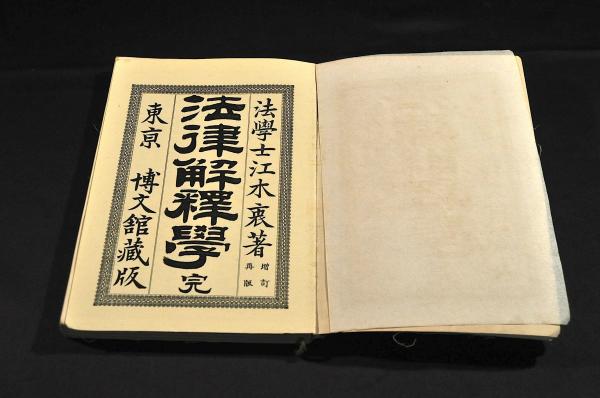 法學士江木衷著
増訂
再版
法律解釋學 完
東京 博文館藏版